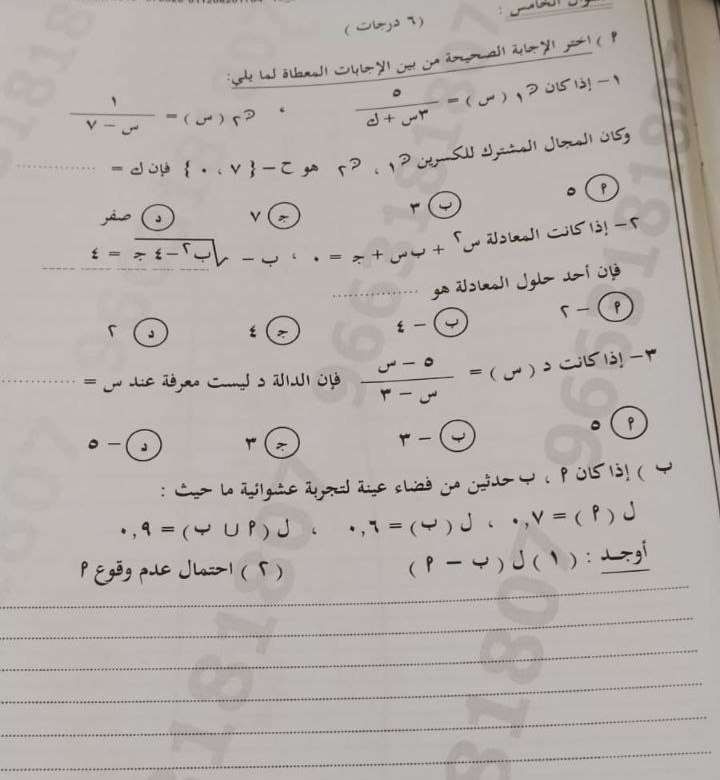 السؤال الخامس : (٦ درجات)
٩ ) اختر الإجابة الصحيحة من بين الإجابات المعطاة لما يلي:
١- إذا كان ن١ (س) = ٥ / ٣س + ك ، ن٢ (س) = ١ / س - ٧
وكان المجال المشترك للكسرين ن١ ، ن٢ هو ح - {٧ ، ٠} فإن ك = ............
أ ٥ ب ٣ ج ٧ د صفر
٢- إذا كانت المعادلة س٢ + ب س + ج = ٠ ، ب - √ب٢ - ٤ ج = ٤
فإن أحد حلول المعادلة هو ............
أ - ٢ ب - ٤ ج ٤ د ٢
٣- إذا كانت د (س) = ٥ - س / س - ٣ فإن الدالة د ليست معرفة عند س = ............
أ ٥ ب - ٣ ج ٣ د - ٥
ب ) إذا كان أ ، ب حدثين من فضاء عينة لتجربة عشوائية ما حيث :
ل (أ) = ٠,٧ ، ل (ب) = ٠,٦ ، ل (أ ∪ ب) = ٠,٩
أوجد : (١) ل (ب - أ) (٢) احتمال عدم وقوع أ